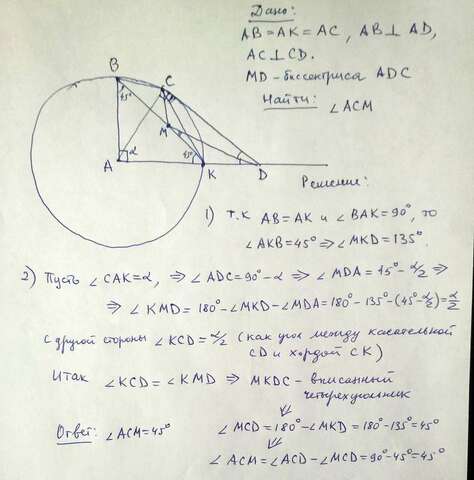 Дано:
AB = AK = AC, AB ⊥ AD,
AC ⊥ CD.
MD - биссектриса ADC
Найти: ∠ACM
B
45°
C
M
A
α
45°
K
D
Решение:
1) т.к AB = AK и ∠BAK = 90°, то
∠AKB = 45° ⇒ ∠MKD = 135°.
2) Пусть ∠CAK = α, ⇒ ∠ADC = 90° - α ⇒ ∠MDA = 45° - α/2 ⇒
⇒ ∠KMD = 180° - ∠MKD - ∠MDA = 180° - 135° - (45° - α/2) = α/2
С другой стороны ∠KCD = α/2 (как угол между касательной
CD и хордой CK)
Итак ∠KCD = ∠KMD ⇒ MKDC - вписанный
четырехугольник
⇓
∠MCD = 180° - ∠MKD = 180° - 135° = 45°
⇓
Ответ: ∠ACM = 45°
∠ACM = ∠ACD - ∠MCD = 90° - 45° = 45°